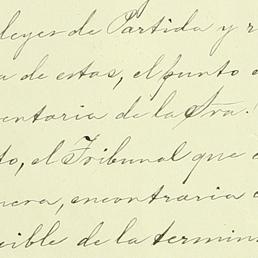 leyes de Partida y r
a de estas, el punto
entaria de la Sra.
to, el Tribunal que
nera, encontraria
cible de la termin